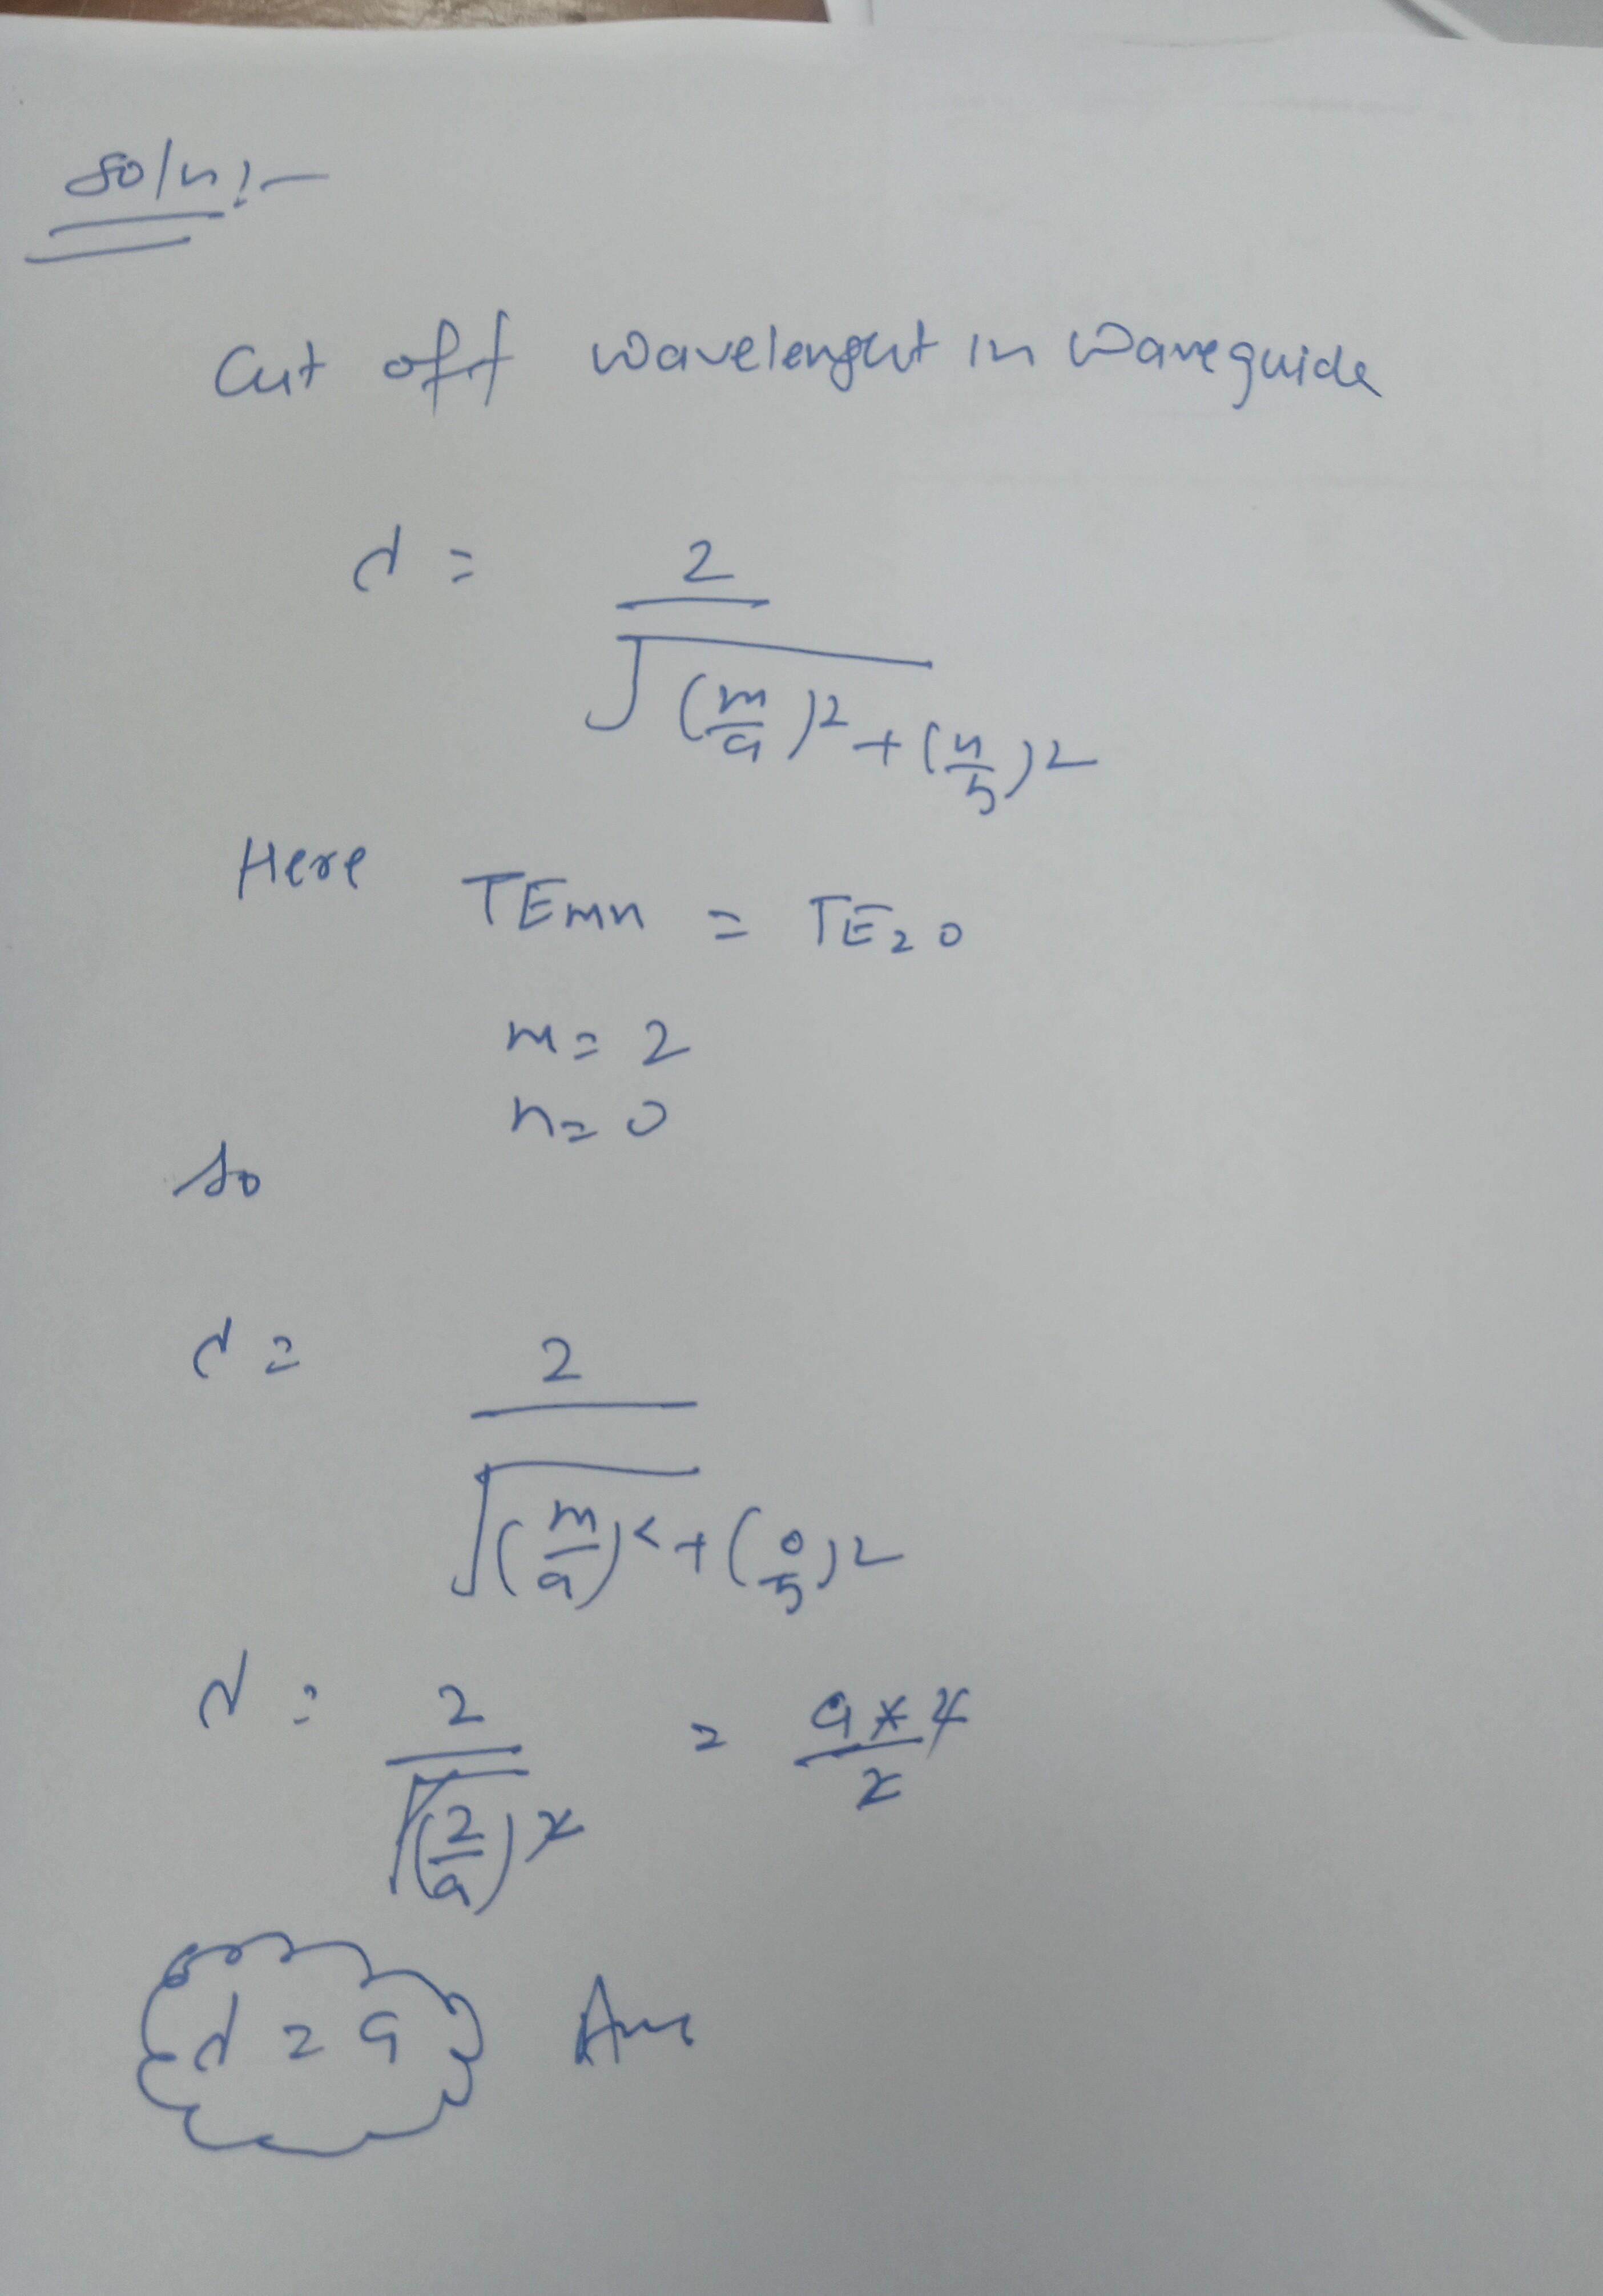 Soln:-
Cut off wavelenght in Waveguide
λ = 2 / √((m/a)² + (n/b)²)
Here TEmn = TE20
m = 2
n = 0
so
λ = 2 / √((m/a)² + (0/b)²)
λ = 2 / √((2/a)²) = a*2/2
λ = a Ans